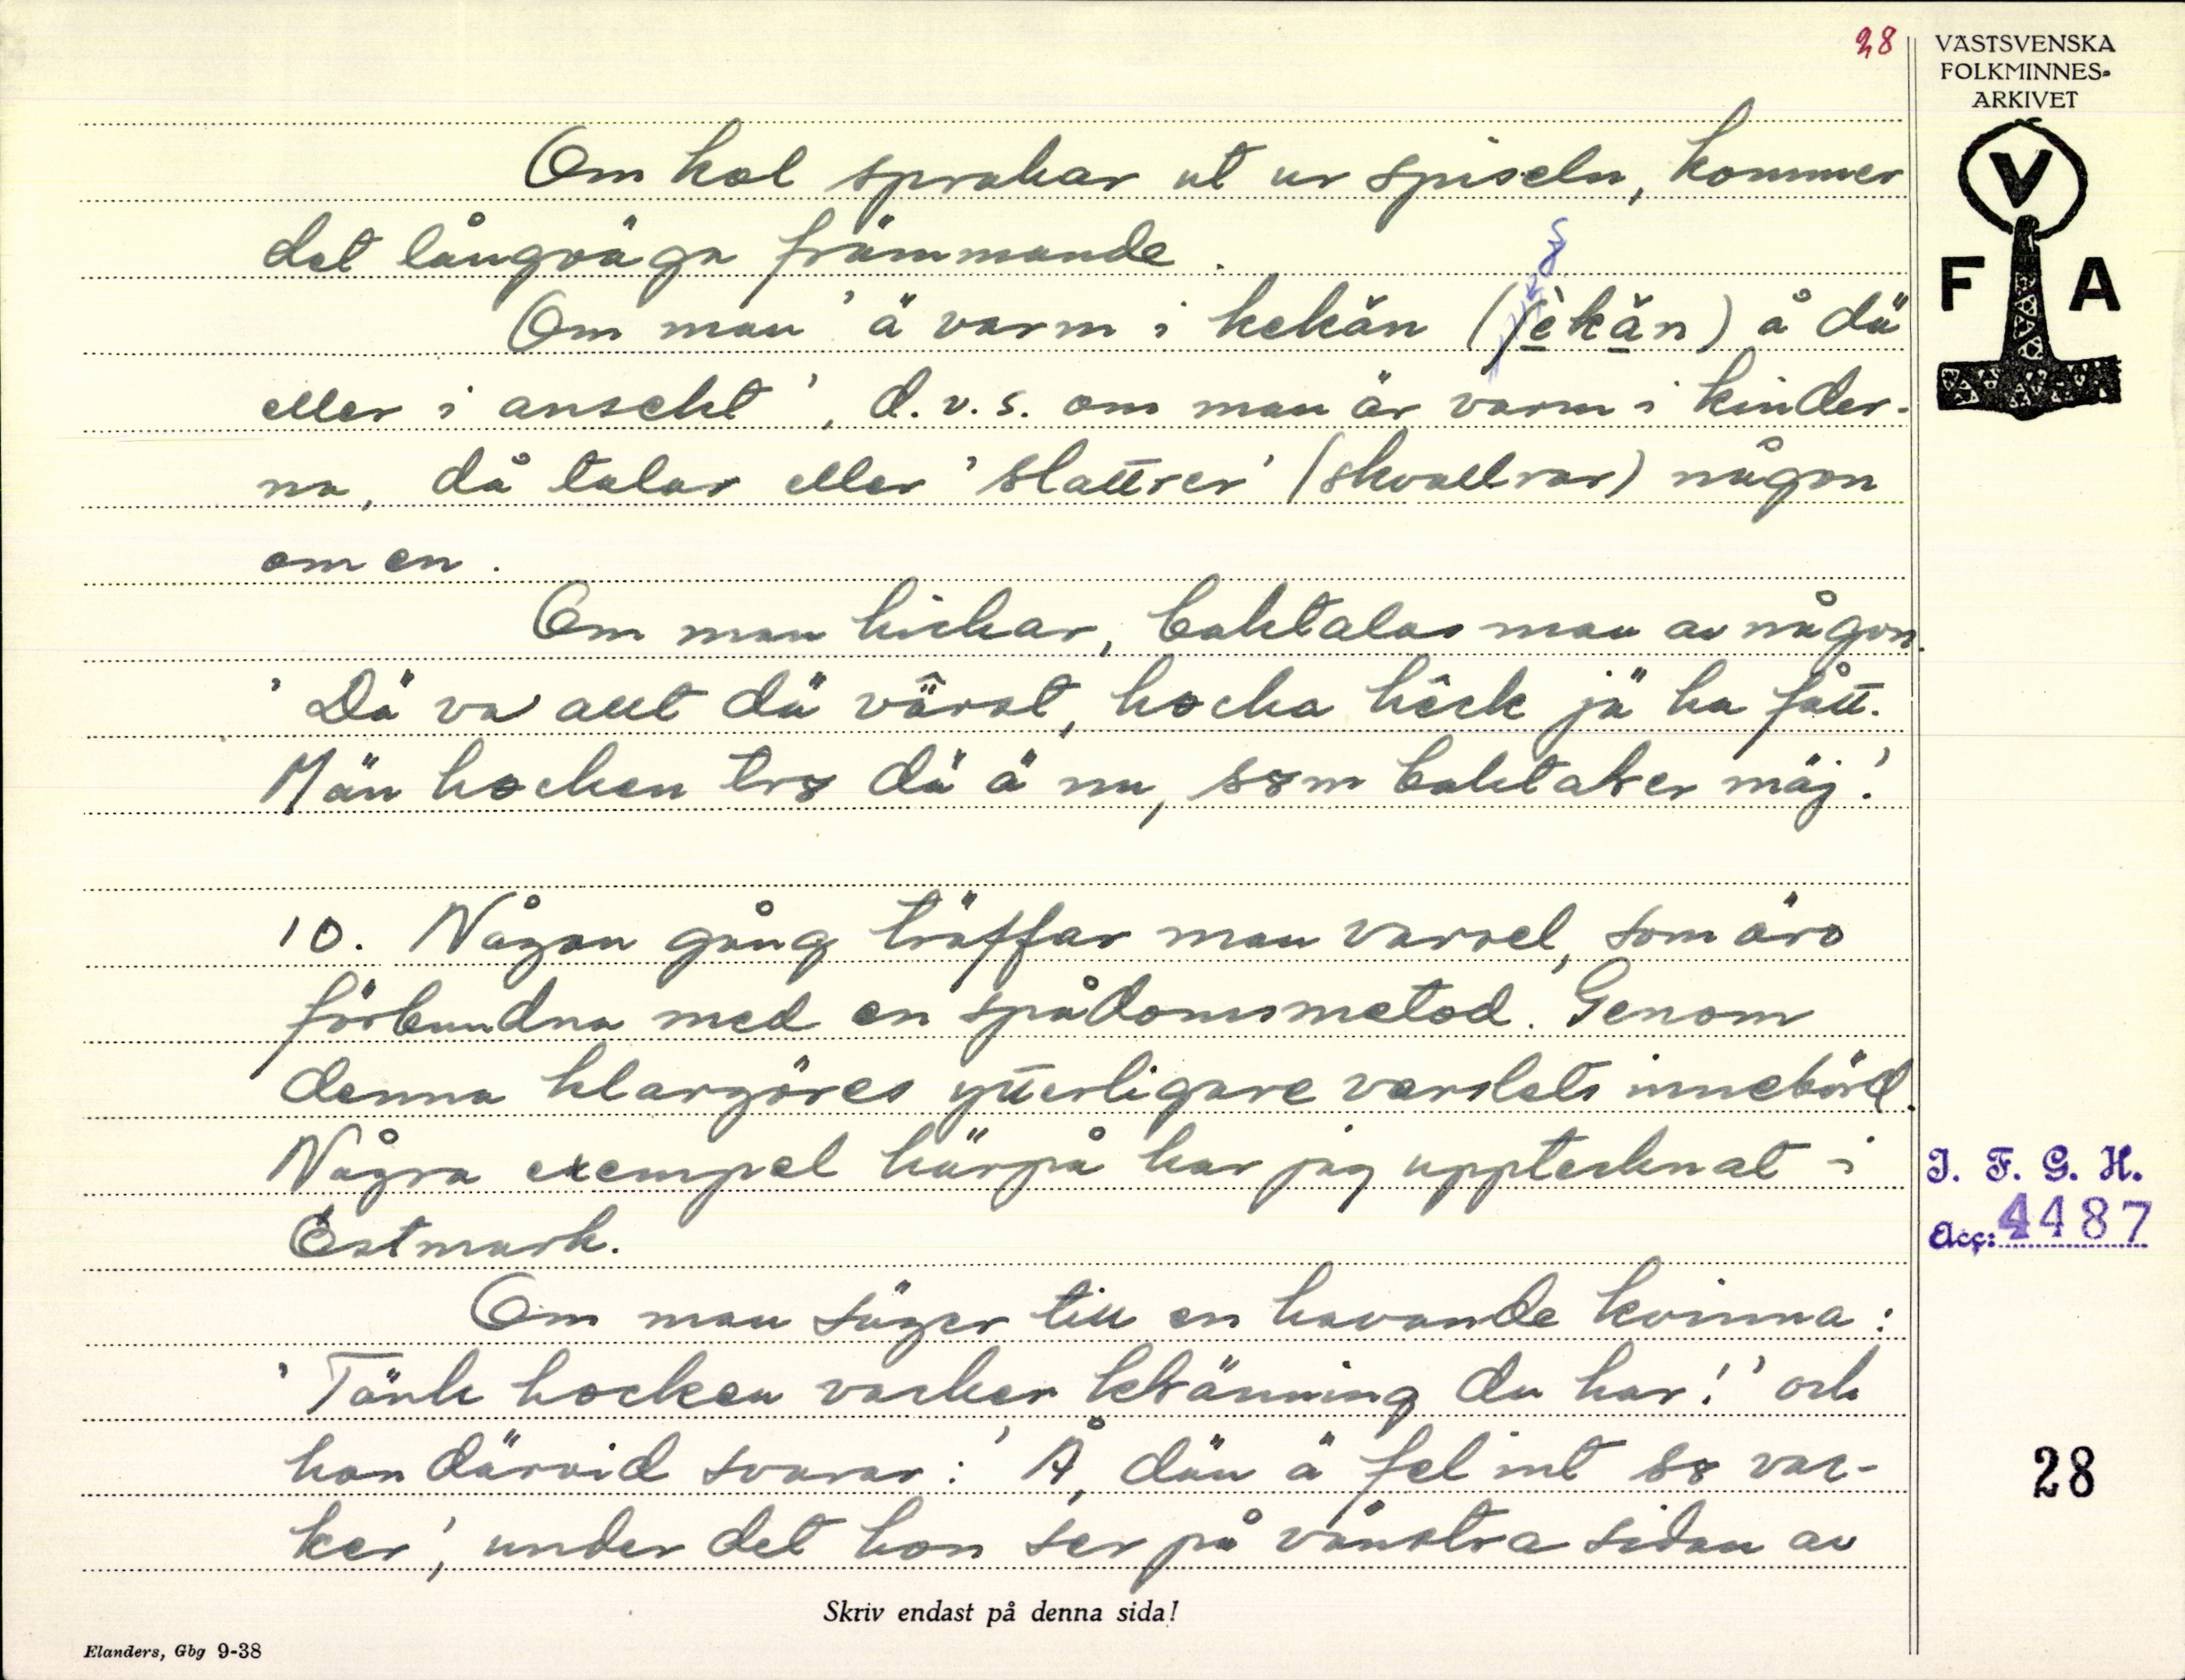 28
VÄSTSVENSKA
FOLKMINNES-
ARKIVET
V
F A
Om kol sprakar ut ur spiseln, kommer
det långväga främmande.
Om man 'ä varm i kekän (ʃèkän) å dä
eller i ansekt', d.v.s. om man är varm i kinder-
na, då talar eller 'slattrer' (skvallrar) någon
om en.
Om man hickar, baktalas man av någon.
'Dä va allt dä vä̂rst, hocka hêck jä ha fått.
Män hocken tro dä ä nu, som baktaler mäj!'
10. Någon gång träffar man varsel, som äro
förbundna med en spådomsmetod. Genom
denna klargöres ytterligare varslets innebörd.
Några exempel härpå har jag upptecknat i
Östmark.
Om man säger till en havande kvinna:
'Tänk hocken vacker klänning du har!' och
hon därvid svarar: 'Å, dän ä fel int so vac-
ker', under det hon ser på vänstra sidan av
I. F. G. H.
Acc: 4487
28
Skriv endast på denna sida!
Elanders, Gbg 9-38